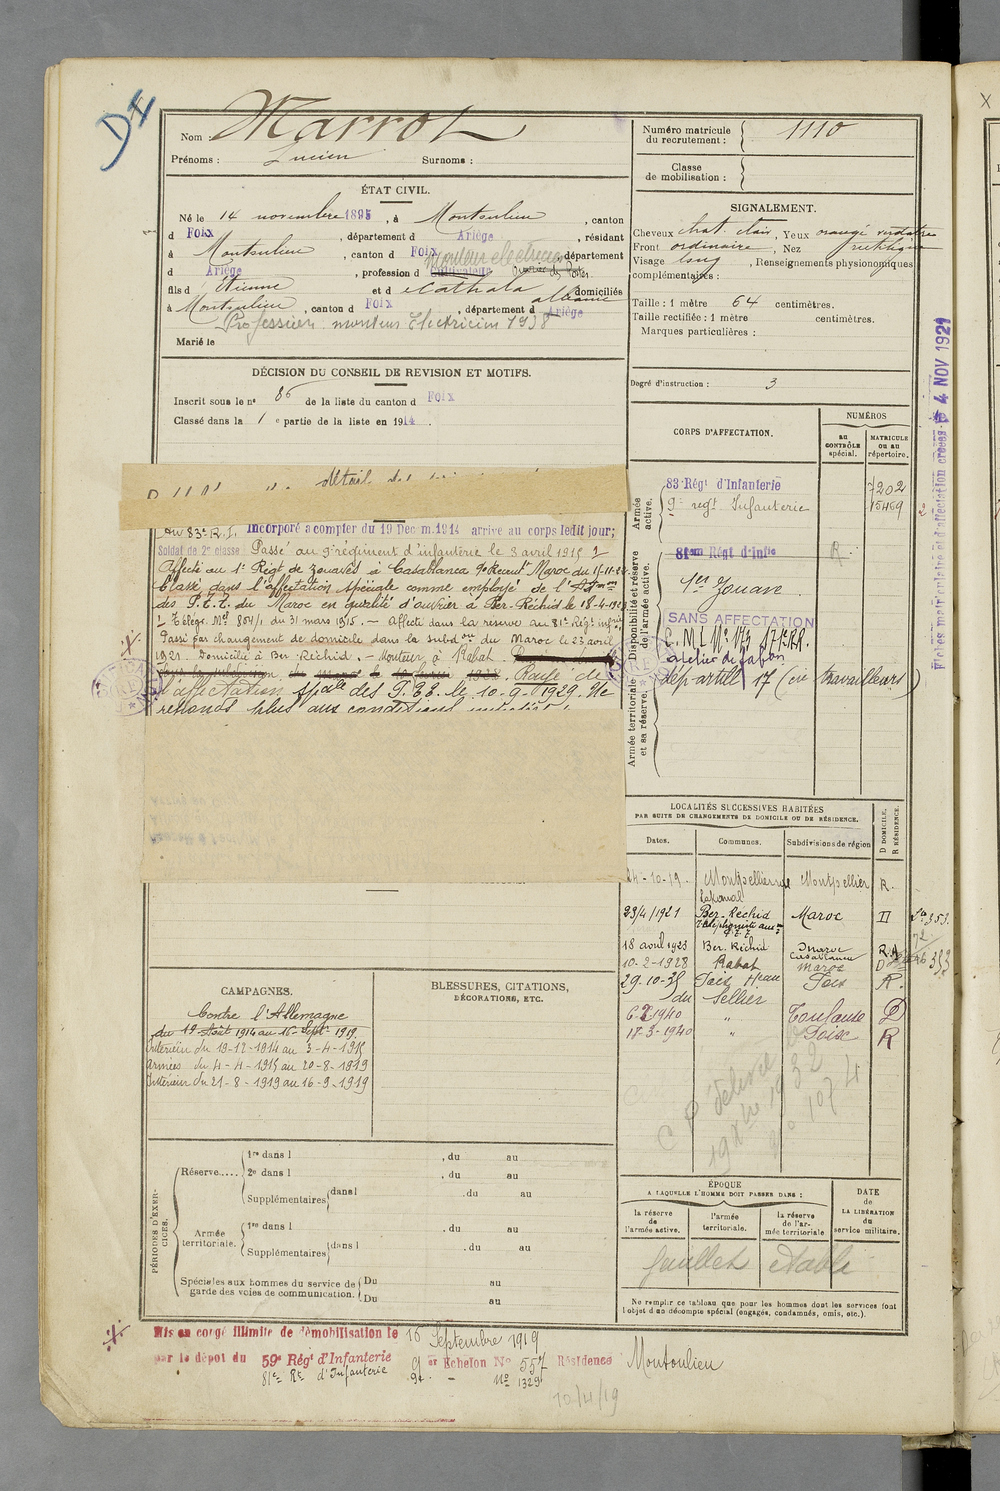 DI
Nom : Marrot
Prénoms : Lucien Surnoms :
Numéro matricule du recrutement : 1110
Classe de mobilisation :
ÉTAT CIVIL.
Né le 14 novembre 1895, à Montoulieu, canton
d Foix, département d Ariège, résidant
à Montoulieu, canton d Foix, département
d Ariège, profession d cultivateur monteur électricien
fils d Etienne et d Cathala Albanie domiciliés
à Montoulieu, canton d Foix, département d Ariège
Profession monteur Electricien 1938
Marié le
SIGNALEMENT.
Cheveux chat. clair, Yeux orangé verdâtre
Front ordinaire, Nez rectiligne
Visage long, Renseignements physionomiques
complémentaires :
Taille : 1 mètre 64 centimètres.
Taille rectifiée : 1 mètre centimètres.
Marques particulières :
Degré d'instruction : 3
DÉCISION DU CONSEIL DE REVISION ET MOTIFS.
Inscrit sous le n° 86 de la liste du canton d Foix
Classé dans la 1 e partie de la liste en 1914.
détail des
Au 83e R.I. Incorporé à compter du 19 Décem. 1914 arrivé au corps ledit jour;
Soldat de 2e classe Passé au 9e régiment d'infanterie le 8 avril 1915
Affecté au 1er Régt de Zouaves à Casablanca 9e Recrutt Maroc du
Classé dans l'affectation spéciale comme employé de l'Admon
des P.T.T. du Maroc en qualité d'ouvrier à Ber-Réchid le 18-4-1923
Télégr. Mel 804/1 du 31 mars 1915. — Affecté dans la réserve au 81e Régt infrie
Passé par changement de domicile dans la subdon du Maroc le 23 avril
1921. Domicilié à Ber Réchid. — Monteur à Rabat.
Rayé de
l'affectation spale des P.T.T. le 10-9-1929. Ne
répond plus aux conditions
CORPS D'AFFECTATION.
NUMÉROS
AU CONTRÔLE spécial.
MATRICULE ou au répertoire.
Armée active.
83e Régt d'Infanterie 7202
9e regt Infanterie 15469
Disponibilité et réserve de l'armée active.
81em Régt d'infie R
1er Zouave
SANS AFFECTATION
C.M.I. N° 173 17e RR.
atelier de fabon
Armée territoriale et sa réserve.
dep artill 17 (cie travailleurs)
Fiches matriculaire et d'affectation créées le 4 NOV 1921
LOCALITÉS SUCCESSIVES HABITÉES
PAR SUITE DE CHANGEMENTS DE DOMICILE OU DE RÉSIDENCE.
Dates. Communes. Subdivisions de région D DOMICILE. R RÉSIDENCE.
24-10-19. Montpellier Montpellier R.
23/4/1921 Ber-Réchid Maroc D
Téléphoniste aux P.T.T.
18 avril 1923 Ber. Réchid Maroc Casablanca R.A
10-2-1928 Rabat Maroc D
29-10-35 Foix Hau Foix R.
du Sellier
1940 " Toulouse D
17-3-1940 " Foix R
C P délivré le
19 Xbre 1932
N° 1074
CAMPAGNES.
Contre l'Allemagne
du 19 Août 1914 au 16 Sept. 1919.
Intérieur du 19-12-1914 au 3-4-1915
Armées du 4-4-1915 au 20-8-1919
Intérieur du 21-8-1919 au 16-9-1919
BLESSURES, CITATIONS,
DÉCORATIONS, ETC.
PÉRIODES D'EXERCICES.
Réserve.....
1re dans l , du au
2e dans l , du au
Supplémentaires dans l . du au
Armée territoriale.
1re dans l , du au
Supplémentaires dans l . du au
Spéciales aux hommes du service de garde des voies de communication.
Du au
Du au
ÉPOQUE
A LAQUELLE L'HOMME DOIT PASSER DANS :
la réserve de l'armée active.
l'armée territoriale.
la réserve de l'armée territoriale
DATE DE LA LIBÉRATION du service militaire.
feuillet établi
Ne remplir ce tableau que pour les hommes dont les services font
l'objet d'un décompte spécial (engagés, condamnés, omis, etc.).
Mis en congé illimité de démobilisation le 16 Septembre 1919
par le dépôt du 59e Régt d'Infanterie 9 er Echelon N° 557 Résidence Montoulieu
81e Rt d'Infanterie 9e - N° 1329
10/4/19